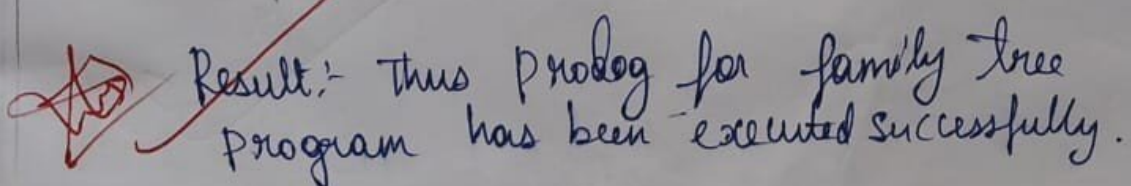 Result:- Thus prolog for family tree
program has been executed successfully.